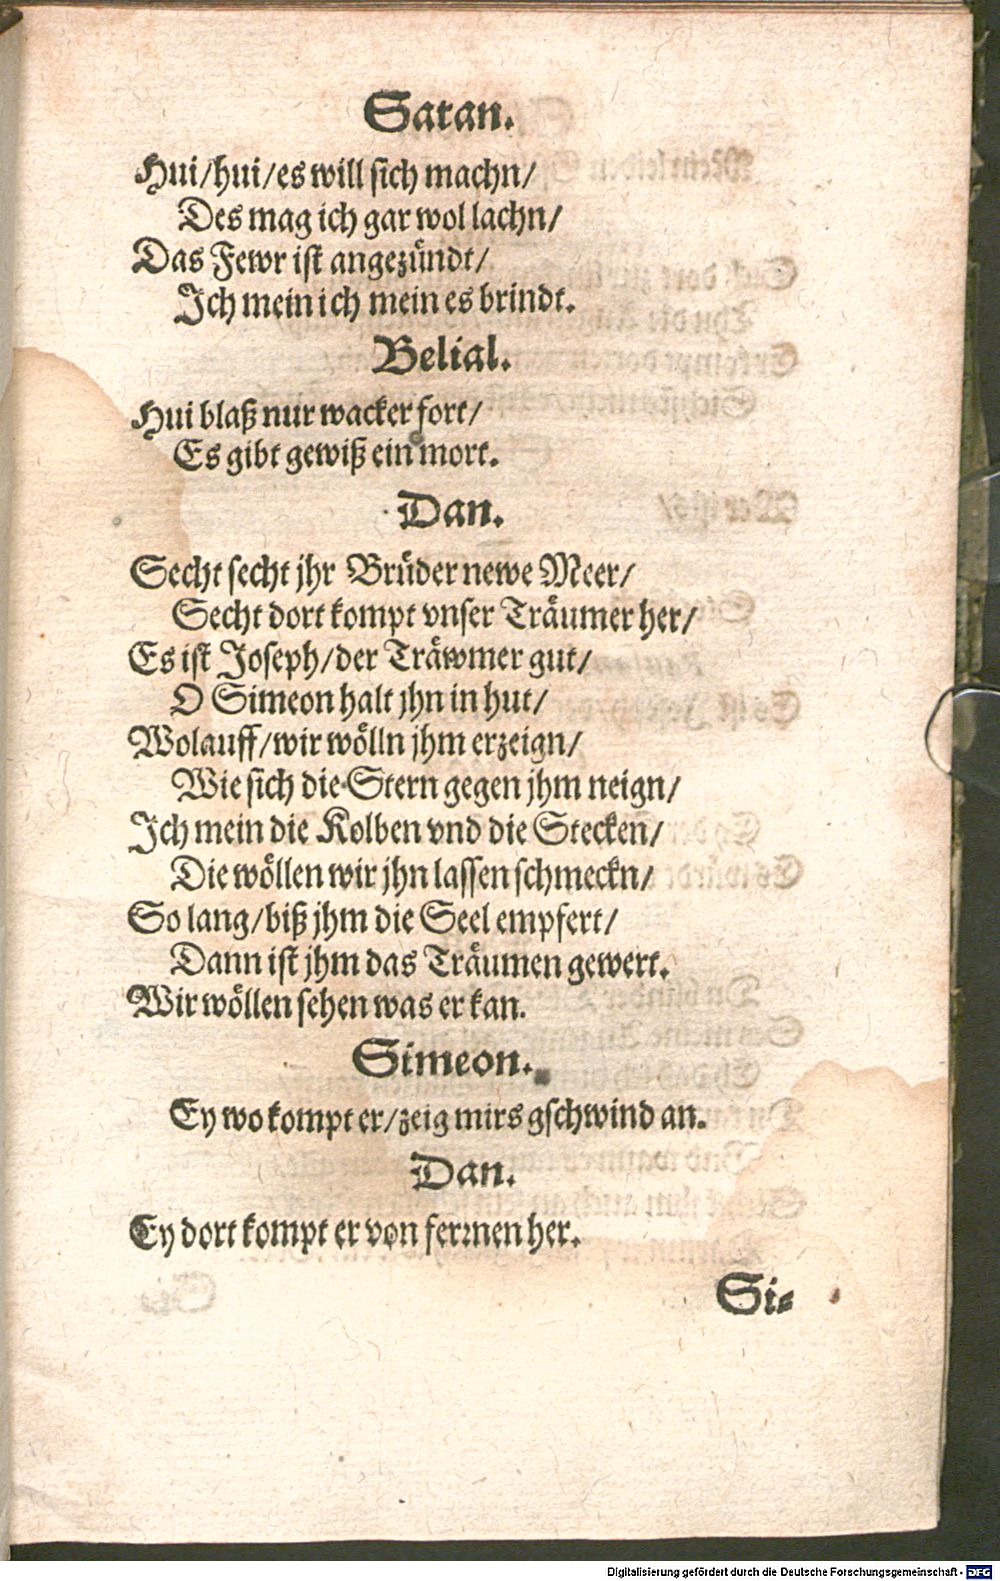 Satan.
Hui/hui/es will sich machn/
Des mag ich gar wol lachn/
Das Fewr ist angezündt/
Ich mein ich mein es brindt.
Belial.
Hui blaß nur wacker fort/
Es gibt gewiß ein mort.
Dan.
Secht secht jhr Brüder newe Meer/
Secht dort kompt vnser Träumer her/
Es ist Joseph/der Träwmer gut/
O Simeon halt jhn in hut/
Wolauff/wir wölln jhm erzeign/
Wie sich die Stern gegen jhm neign/
Ich mein die Kolben vnd die Stecken/
Die wöllen wir jhn lassen schmeckn/
So lang/biß jhm die Seel empfert/
Dann ist jhm das Träumen gewert.
Wir wöllen sehen was er kan.
Simeon.
Ey wo kompt er/zeig mirs gschwind an.
Dan.
Ey dort kompt er von fermen her.
Si-
Digitalisierung gefördert durch die Deutsche Forschungsgemeinschaft - DFG